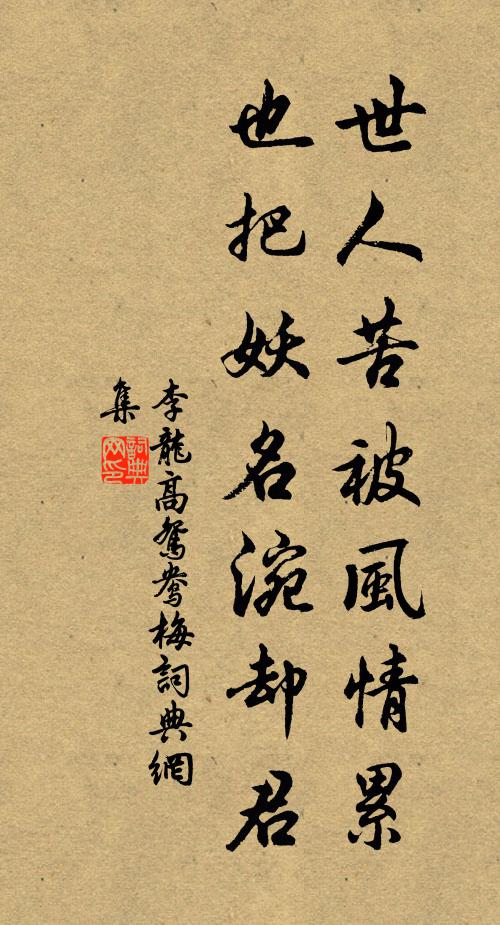 世人苦被風情累
也把妖名涴却君
李龍高鴛鴦梅詞典網
集
詞典
网印